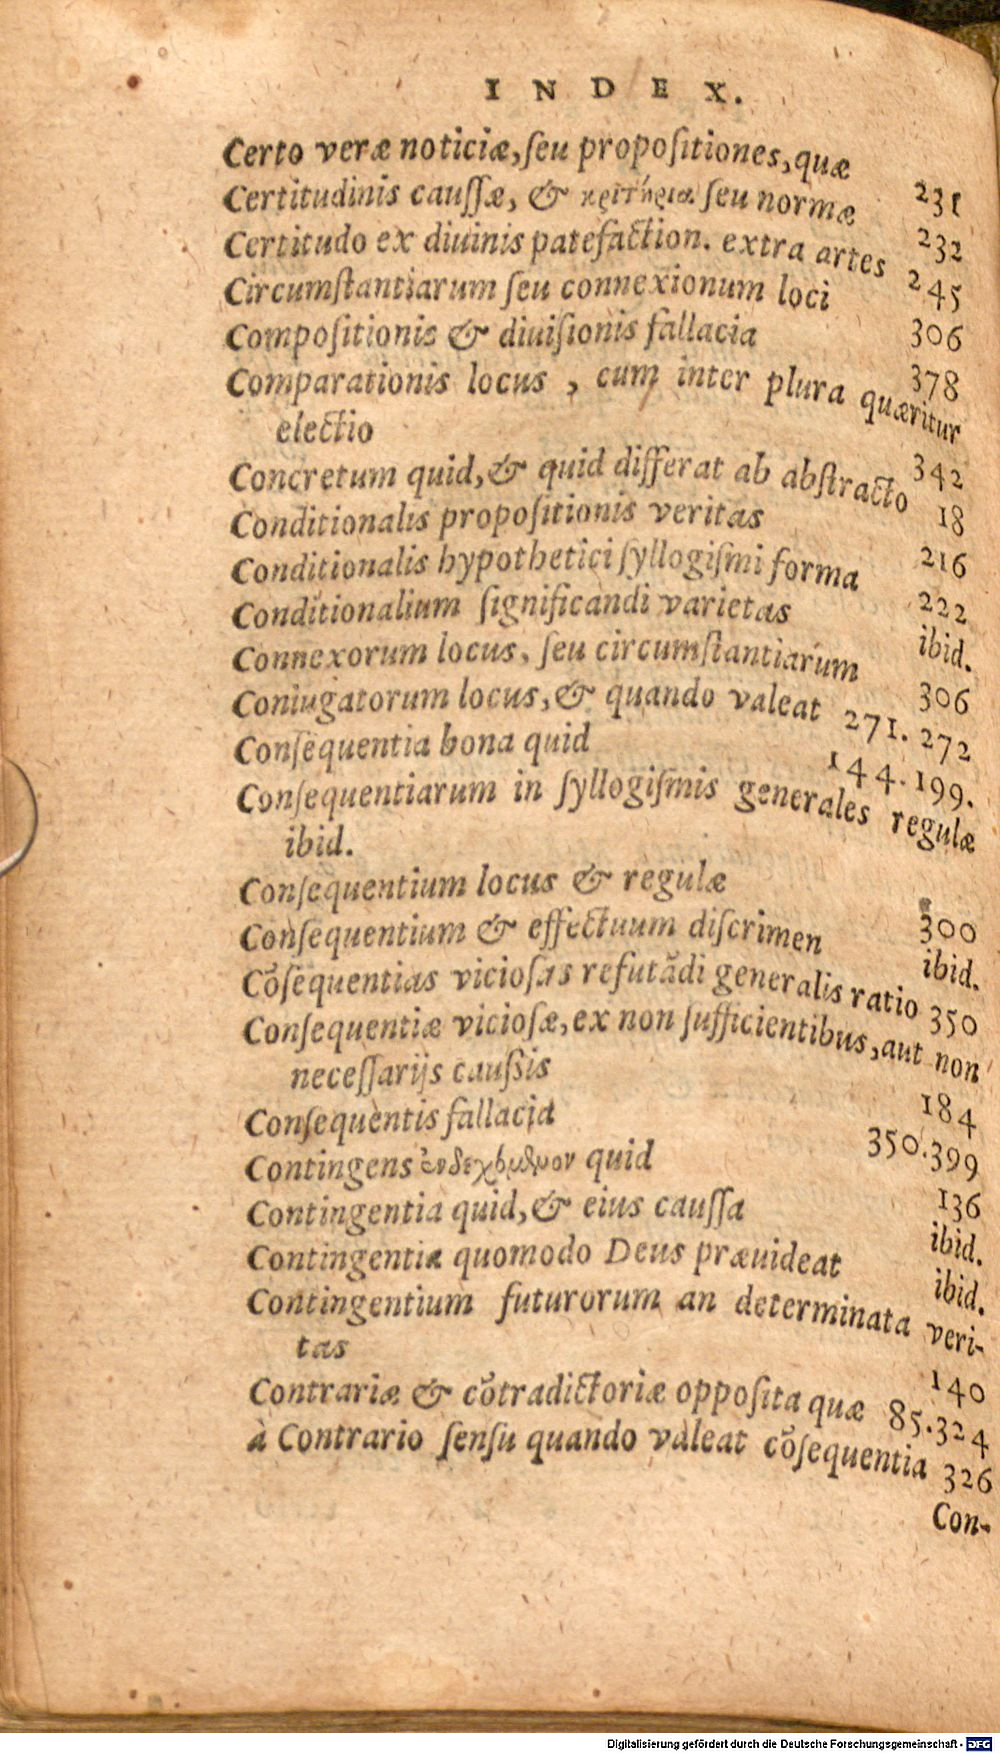 INDEX.
Certo veræ noticiæ, ſeu propoſitiones, quæ 231
Certitudinis cauſſæ, & κριτήρια ſeu normæ 232
Certitudo ex diuinis patefaction. extra artes 245
Circumſtantiarum ſeu connexionum loci 306
Compoſitionis & diuiſionis fallacia 378
Comparationis locus, cum inter plura quæritur
electio 342
Concretum quid, & quid differat ab abſtracto 18
Conditionalis propoſitionis veritas 216
Conditionalis hypothetici ſyllogiſmi forma 222
Conditionalium ſignificandi varietas ibid.
Connexorum locus, ſeu circumſtantiarum 306
Coniugatorum locus, & quando valeat 271. 272
Conſequentia bona quid 144. 199.
Conſequentiarum in ſyllogiſmis generales regulæ
ibid.
Conſequentium locus & regulæ 300
Conſequentium & effectuum diſcrimen ibid.
Cōſequentias vicioſas refutādi generalis ratio 350
Conſequentiæ vicioſæ, ex non ſufficientibus, aut non
neceſſarijs cauſsis 184
Conſequentis fallacia 350. 399
Contingens quid 136
Contingentia quid, & eius cauſſa ibid.
Contingentia quomodo Deus præuideat ibid.
Contingentium futurorum an determinata veri-
tas 140
Contrariæ & cōtradictoriæ oppoſita quæ 85. 324
à Contrario ſenſu quando valeat cōſequentia 326
Con-
Digitalisierung gefördert durch die Deutsche Forschungsgemeinschaft - DFG